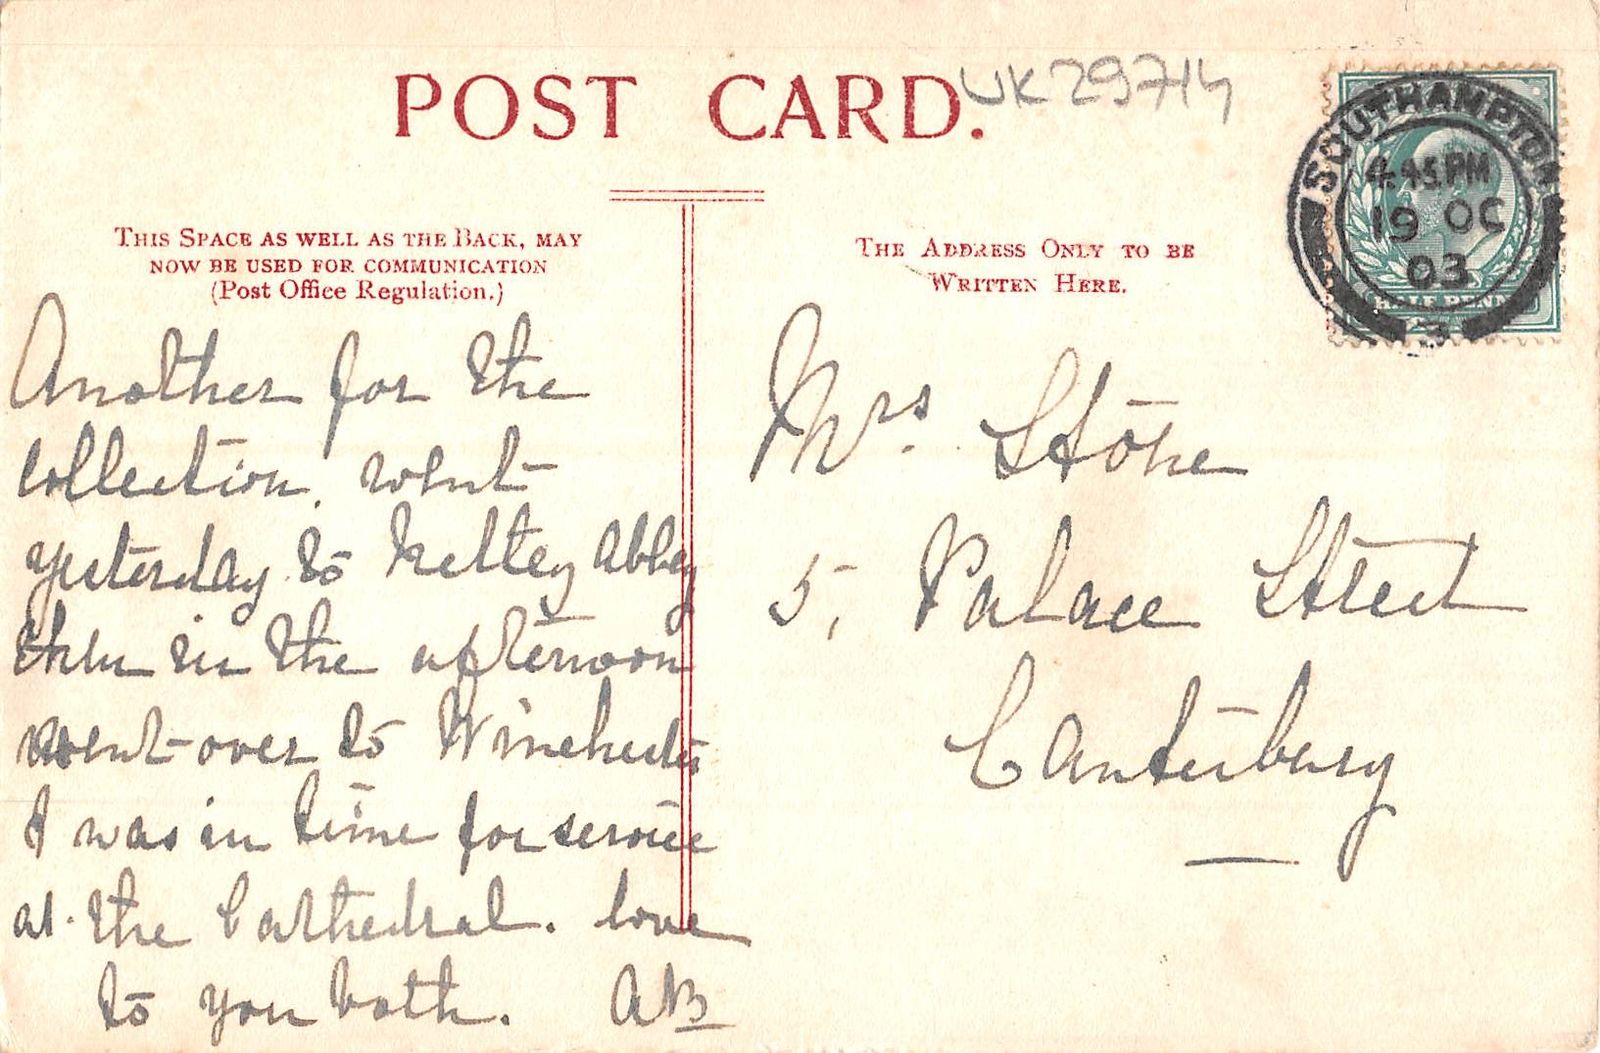 POST CARD.
UK29714
SOUTHAMPTON
4.45 PM
19 OC
03
3
HALF PENNY
THIS SPACE AS WELL AS THE BACK, MAY
NOW BE USED FOR COMMUNICATION
(Post Office Regulation.)
THE ADDRESS ONLY TO BE
WRITTEN HERE.
Another for the
collection. went
yesterday to Netley Abbey
then in the afternoon
went over to Winchester
I was in time for service
at the Cathedral. love
to you both. AB
Mrs. Stone
5, Palace Street
Canterbury